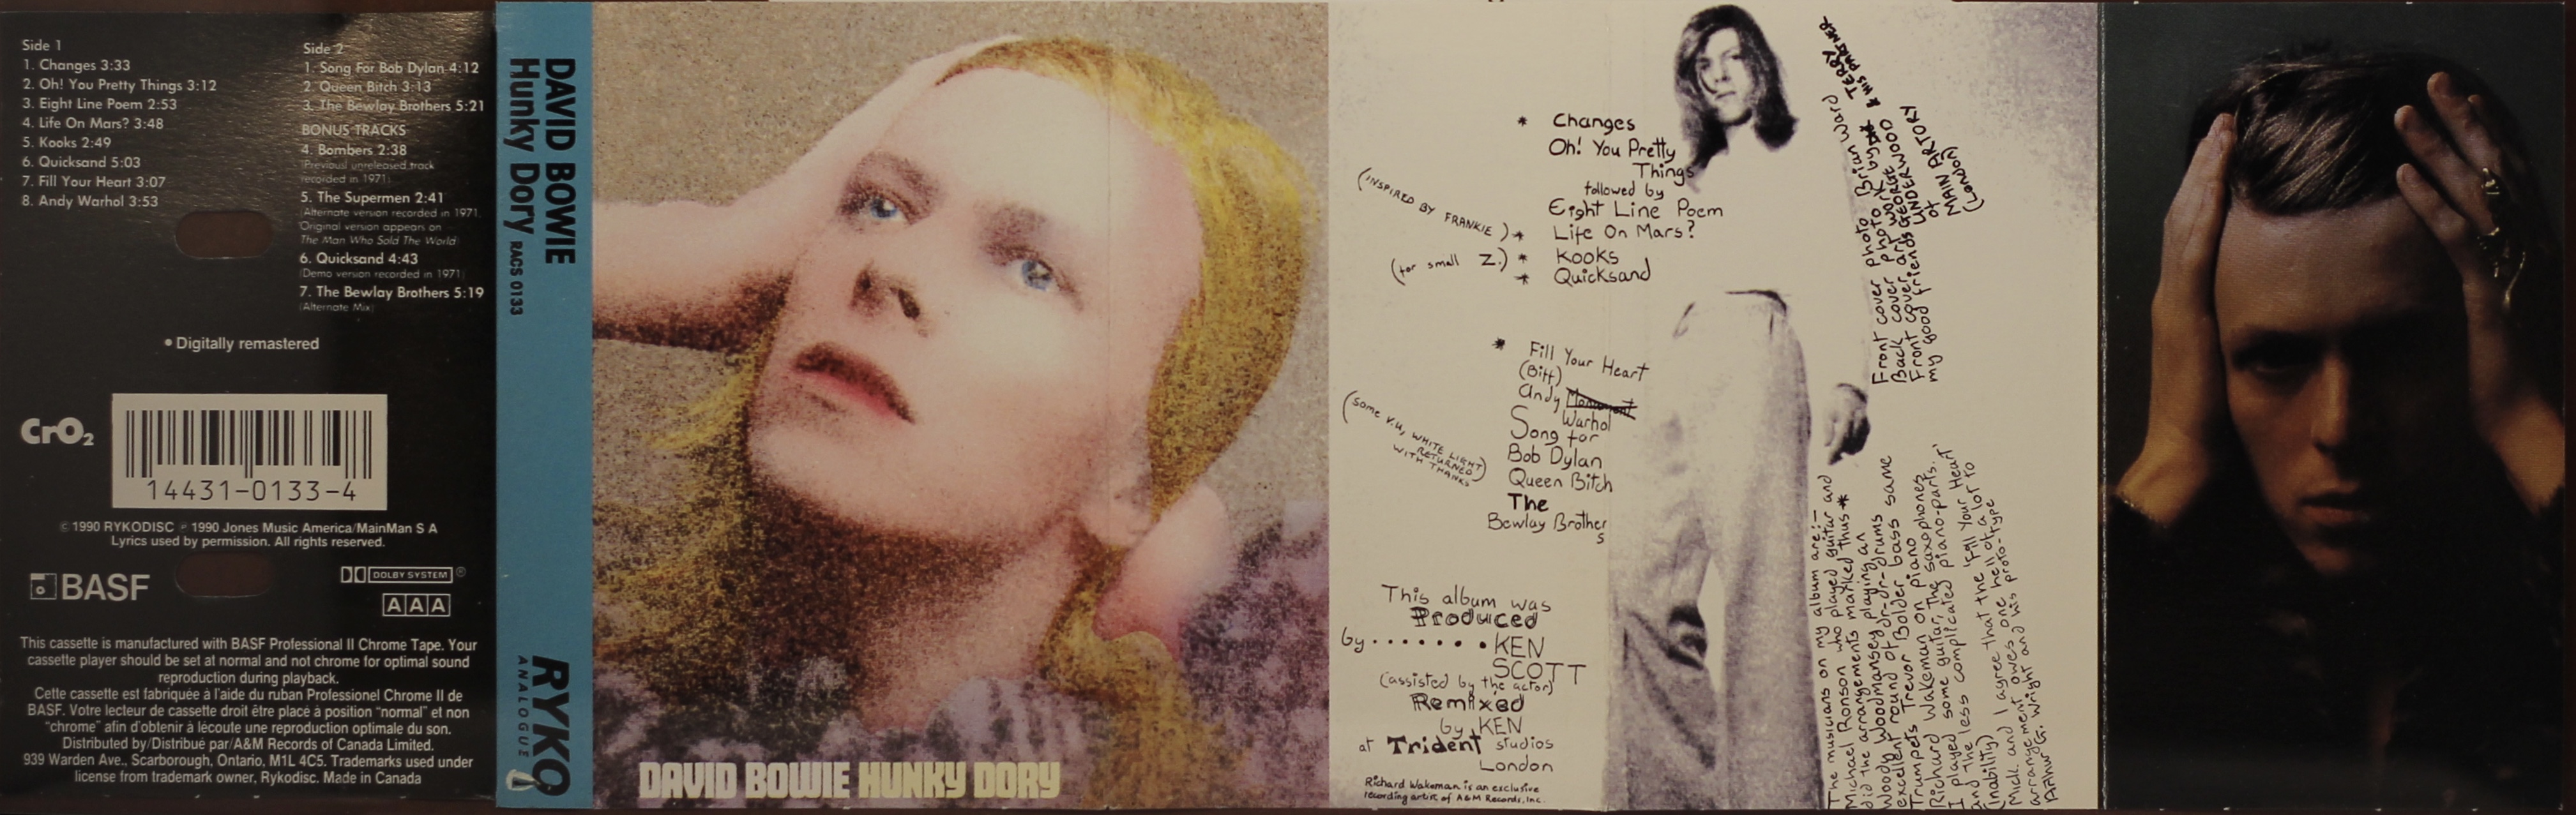 Side 1
1. Changes 3:33
2. Oh! You Pretty Things 3:12
3. Eight Line Poem 2:53
4. Life On Mars? 3:48
5. Kooks 2:49
6. Quicksand 5:03
7. Fill Your Heart 3:07
8. Andy Warhol 3:53
Side 2
1. Song For Bob Dylan 4:12
2. Queen Bitch 3:13
3. The Bewlay Brothers 5:21
BONUS TRACKS
4. Bombers 2:38
(Previousl unreleased track
recorded in 1971)
5. The Supermen 2:41
(Alternate version recorded in 1971.
Original version appears on
The Man Who Sold The World)
6. Quicksand 4:43
(Demo version recorded in 1971)
7. The Bewlay Brothers 5:19
(Alternate Mix)
• Digitally remastered
CrO2
14431-0133-4
© 1990 RYKODISC ℗ 1990 Jones Music America/MainMan S A
Lyrics used by permission. All rights reserved.
BASF
DOLBY SYSTEM ®
AAA
This cassette is manufactured with BASF Professional II Chrome Tape. Your
cassette player should be set at normal and not chrome for optimal sound
reproduction during playback.
Cette cassette est fabriquée à l'aide du ruban Professionel Chrome II de
BASF. Votre lecteur de cassette droit être placé à position "normal" et non
"chrome" afin d'obtenir à lécoute une reproduction optimale du son.
Distributed by/Distribué par/A&M Records of Canada Limited.
939 Warden Ave., Scarborough, Ontario, M1L 4C5. Trademarks used under
license from trademark owner, Rykodisc. Made in Canada
DAVID BOWIE
Hunky Dory RACS 0133
RYKO
ANALOGUE
DAVID BOWIE HUNKY DORY
* Changes
Oh! You Pretty
Things
followed by
Eight Line Poem
(INSPIRED BY FRANKIE) * Life On Mars?
(for small Z.) * Kooks
* Quicksand
* Fill Your Heart
(Biff)
Andy
Warhol
Song for
Bob Dylan
(some V.U, WHITE LIGHT
RETURNED
WITH THANKS)
Queen Bitch
The
Bewlay Brother
s
This album was
Produced
by ....... KEN
SCOTT
(assisted by the actor)
Remixed
by KEN
at Trident studios
London
Richard Wakeman is an exclusive
recording artist of A&M Records, Inc.
Front cover photo Brian Ward
Back cover photo by & HIS PARTNER TERRY
Front cover art work
my good friends GEORGE UNDERWOOD
of
MAIN ARTORY
(London)
The musicians on my album are:-
Michael Ronson who played guitar and
did the arrangements marked thus *
Woody Woodmansey playing an
excellent round of dr-dr-drums
Trumpets Trevor Bolder bass same
Richard Wakeman on piano
I played some guitar, the saxophones
and the less complicated piano-parts.
(inability)
Mick and I agree that the 'Fill Your Heart'
arrangement owes one hell of a lot to
Arthur G. Wright and his proto-type